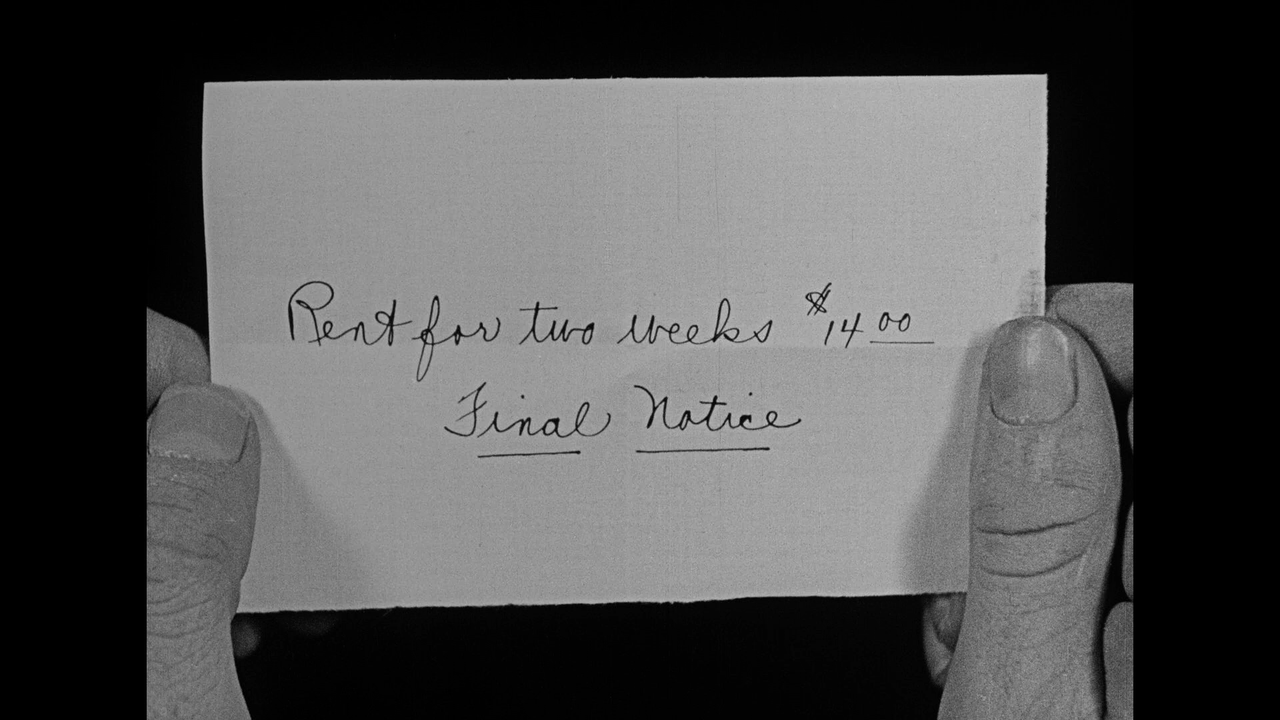 Rent for two weeks $14 00
Final Notice